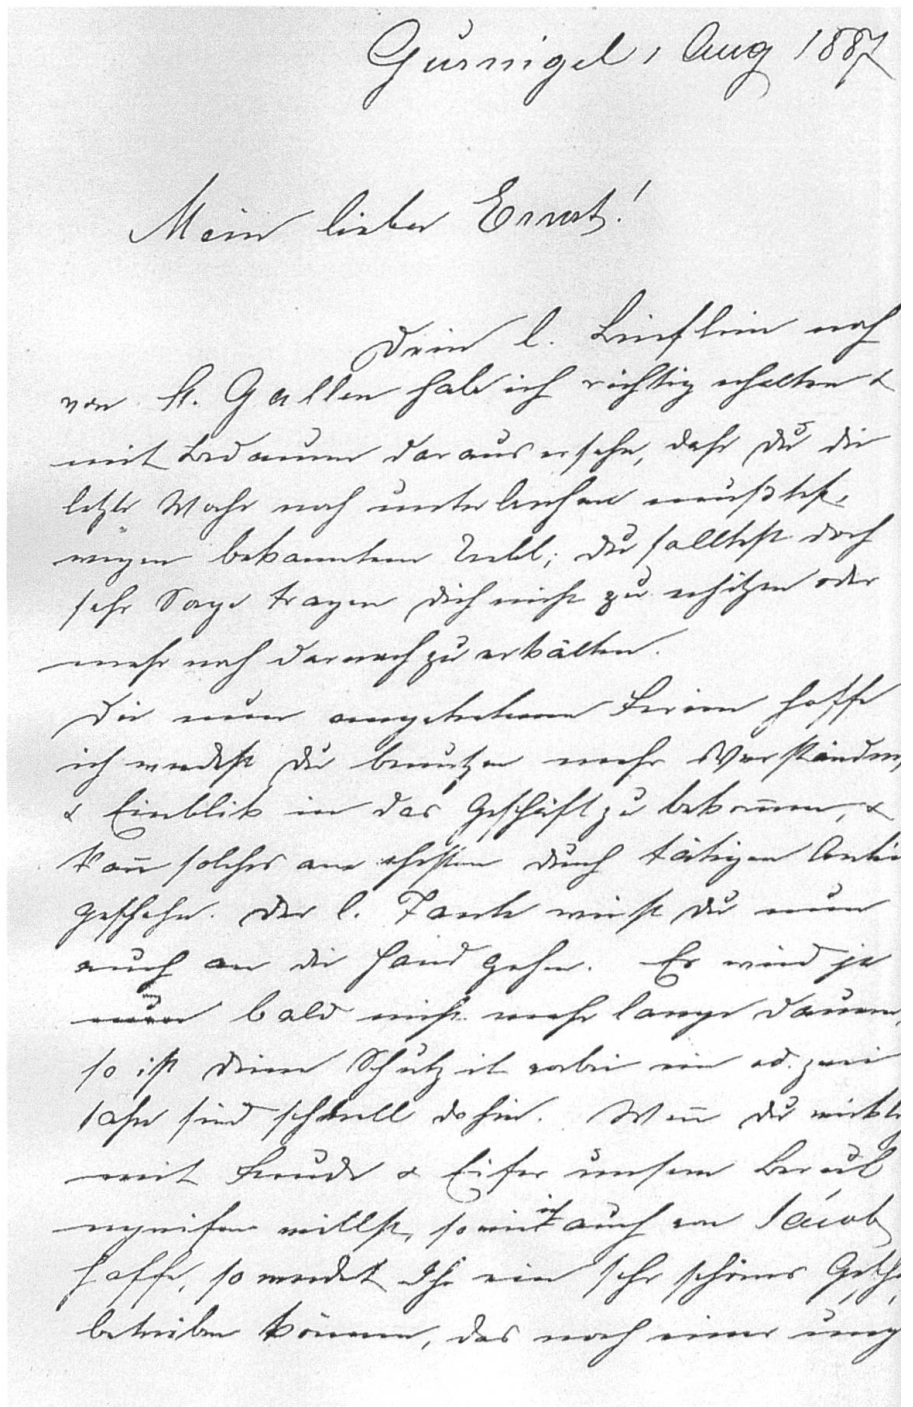 Gurnigel, Aug 1887
Mein lieber Ernst!
Dein l. Brieflein noch
von St. Gallen hab ich richtig erhalten &
mit Bedauern daraus ersehn, daß Du die
letzte Woche noch unterbrechen mußtest,
wegen bekanntem Uebel; Du solltest doch
sehr Sorge tragen Dich nicht zu erhitzen oder
mehr noch darnach zu erkälten.
Die nun angetretenen Ferien hoffe
ich werdest Du benutzen mehr Verständn
& Einblik in das Geschäft zu bekom̄en, &
kan̄ solches am ehesten durch tätigen Antei
geschehn. Der l. Tante wirst Du nun
auch an die Hand gehn. Es wird ja
nun bald nicht mehr lange dauern,
so ist Deine Schulzeit vorbei ein od. zwei
Jahre sind schnell dahin. Wen̄ Du wirkli
mit Freude & Eifer unsern Beruf
ergreifen willst, so wie ich auch von Jacob
hoffe, so werdet Ihr ein sehr schönes Gesch
betreiben können, das noch einer